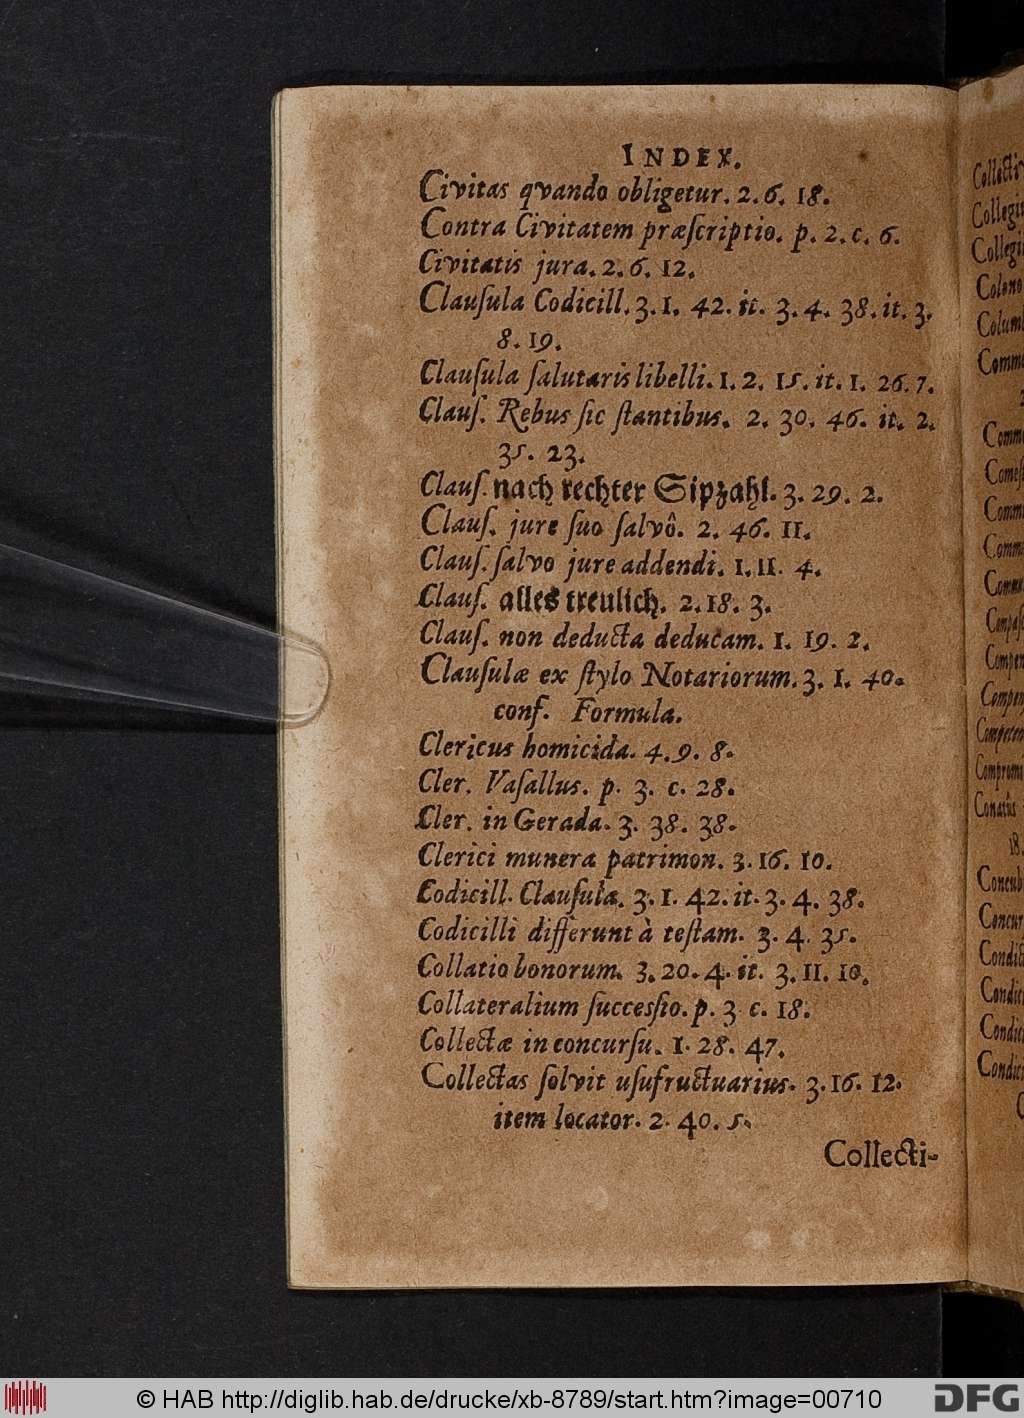 INDEX.
Civitas qvando obligetur. 2. 6. 18.
Contra Civitatem præſcriptio. p. 2. c. 6.
Civitatis jura. 2. 6. 12.
Clauſula Codicill. 3. 1. 42. it. 3. 4. 38. it. 3.
8. 19.
Clauſula ſalutaris libelli. 1. 2. 15. it. 1. 26. 7.
Clauſ. Rebus ſic ſtantibus. 2. 30. 46. it. 2.
35. 23.
Clauſ. nach rechter Sipzahl. 3. 29. 2.
Clauſ. jure ſuo ſalvô. 2. 46. 11.
Clauſ. ſalvo jure addendi. 1. 11. 4.
Clauſ. alles treulich. 2. 18. 3.
Clauſ. non deducta deducam. 1. 19. 2.
Clauſulæ ex ſtylo Notariorum. 3. 1. 40.
conf. Formula.
Clericus homicida. 4. 9. 8.
Cler. Vaſallus. p. 3. c. 28.
Cler. in Gerada. 3. 38. 38.
Clerici munera patrimon. 3. 16. 10.
Codicill. Clauſula. 3. 1. 42. it. 3. 4. 38.
Codicilli differunt à teſtam. 3. 4. 35.
Collatio bonorum. 3. 20. 4. it. 3. 11. 10.
Collateralium ſucceſſio. p. 3 c. 18.
Collectæ in concurſu. 1. 28. 47.
Collectas ſolvit uſufructuarius. 3. 16. 12.
item locator. 2. 40. 5.
Collecti-
© HAB http://diglib.hab.de/drucke/xb-8789/start.htm?image=00710
DFG